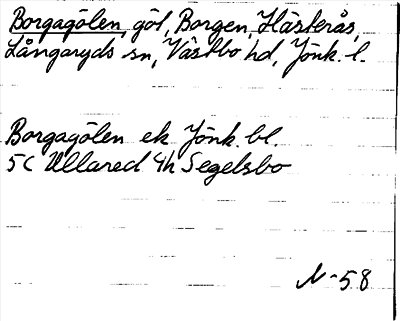 Borgagölen, göl, Borgen, Hästerås,
Långaryds sn, Västbo hd, Jönk. l.
Borgagölen ek Jönk. bl.
5C Ullared 4h Segelsbo
N-58